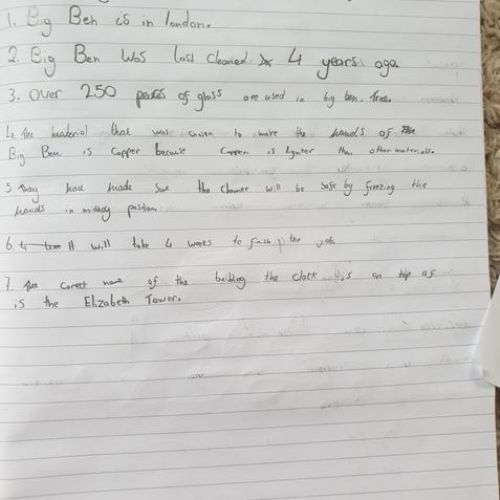 1. Big Ben is in london.
2. Big Ben was last cleaned 4 years ago
3. Over 250 peices of glass are used in big ben.
4. The material that was chosen to make the hands of
Big Ben is copper because copper is lighter than other materials.
5. They have made sure the cleaner will be safe by freezing the
hands in midday position.
6. It will take 4 weeks to finish the
7. The correct name of the building the clock is on top of
is the Elizabeth Tower.